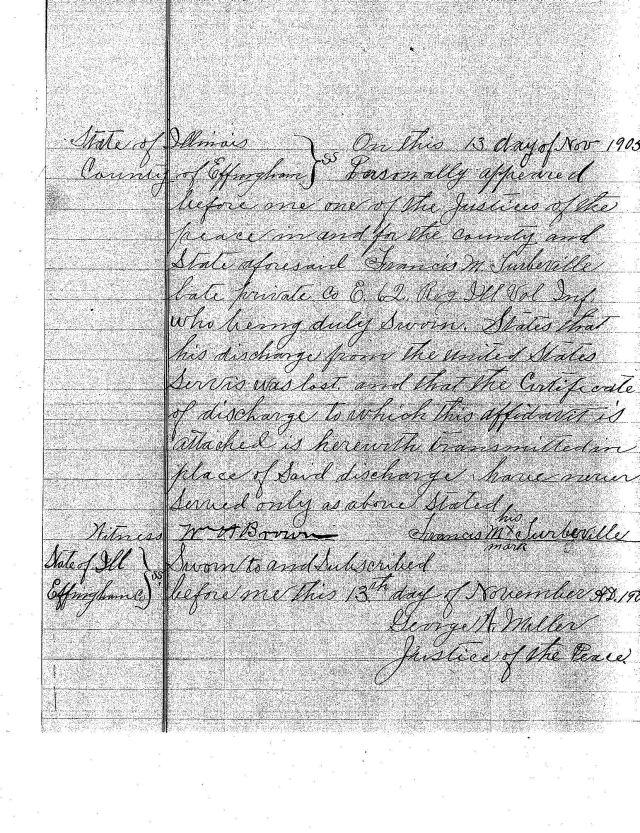 State of Illinois } ss On this 13 day of Nov 1905
County of Effingham } Personally appeared
before me one of the Justices of the
peace in and for the county and
State aforesaid Francis M. Surbeville
late private Co E, 62, Reg Ill Vol Inf,
who being duly Sworn. States that
his discharge from the united States
Servis was lost. and that the Certificate
of discharge to which this affidavit is
attached is herewith transmitted in
place of Said discharge have never
Served only as above Stated
his
Witness Wm H Brown Francis M x Surbeville
mark
State of Ill } ss Sworn to and Subscribed
Effingham Co } before me this 13th day of November A.D. 190
George A. Miller
Justice of the Peace.